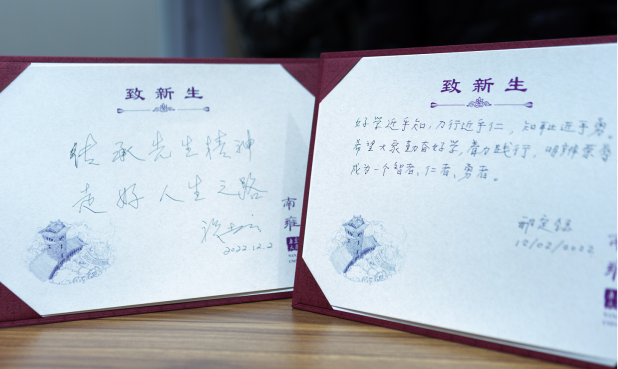 致新生
传承先生精神
走好人生之路
2022.12.2
南
雍
致新生
好学近乎知，力行近乎仁，知耻近乎勇。
希望大家勤奋好学，奋力践行，明辨荣辱
成为一个智者、仁者、勇者。
12/02/2022
南
雍